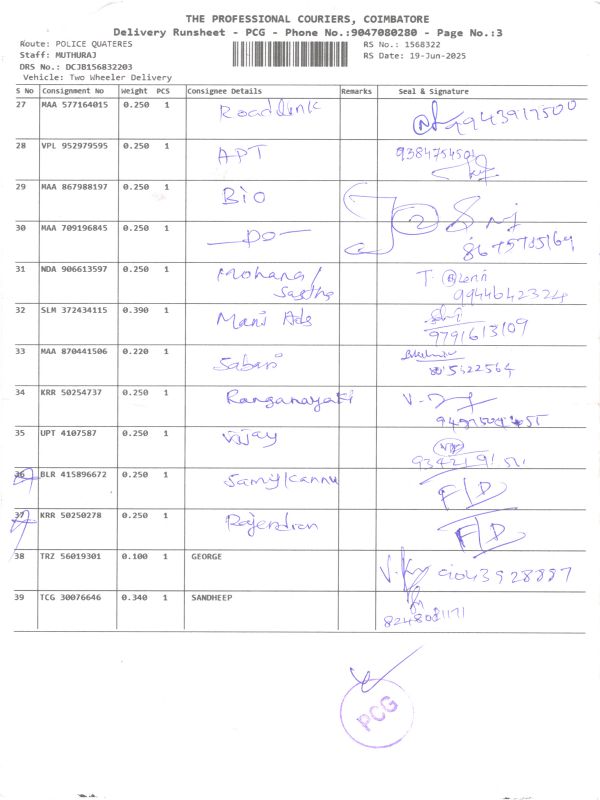 THE PROFESSIONAL COURIERS, COIMBATORE
Delivery Runsheet - PCG - Phone No.:9047080280 - Page No.:3
Route: POLICE QUATERES RS No.: 1568322
Staff: MUTHURAJ RS Date: 19-Jun-2025
DRS No.: DCJB156832203
Vehicle: Two Wheeler Delivery
S No Consignment No Weight PCS Consignee Details Remarks Seal & Signature
27 MAA 577164015 0.250 1 Roadlink 9943917500
28 VPL 952979595 0.250 1 APT
29 MAA 867988197 0.250 1 Bio
30 MAA 709196845 0.250 1 —DO— 2
31 NDA 906613597 0.250 1 Mohana/ T.
9944642324
32 SLM 372434115 0.390 1 Mani Ads
9791613109
33 MAA 870441506 0.220 1 Sabari
34 KRR 50254737 0.250 1 Ranganayaki
35 UPT 4107587 0.250 1 Vijay
36 BLR 415896672 0.250 1 F/D
37 KRR 50250278 0.250 1 Rajendran F/D
38 TRZ 56019301 0.100 1 GEORGE 9043928887
39 TCG 30076646 0.340 1 SANDHEEP
PCG